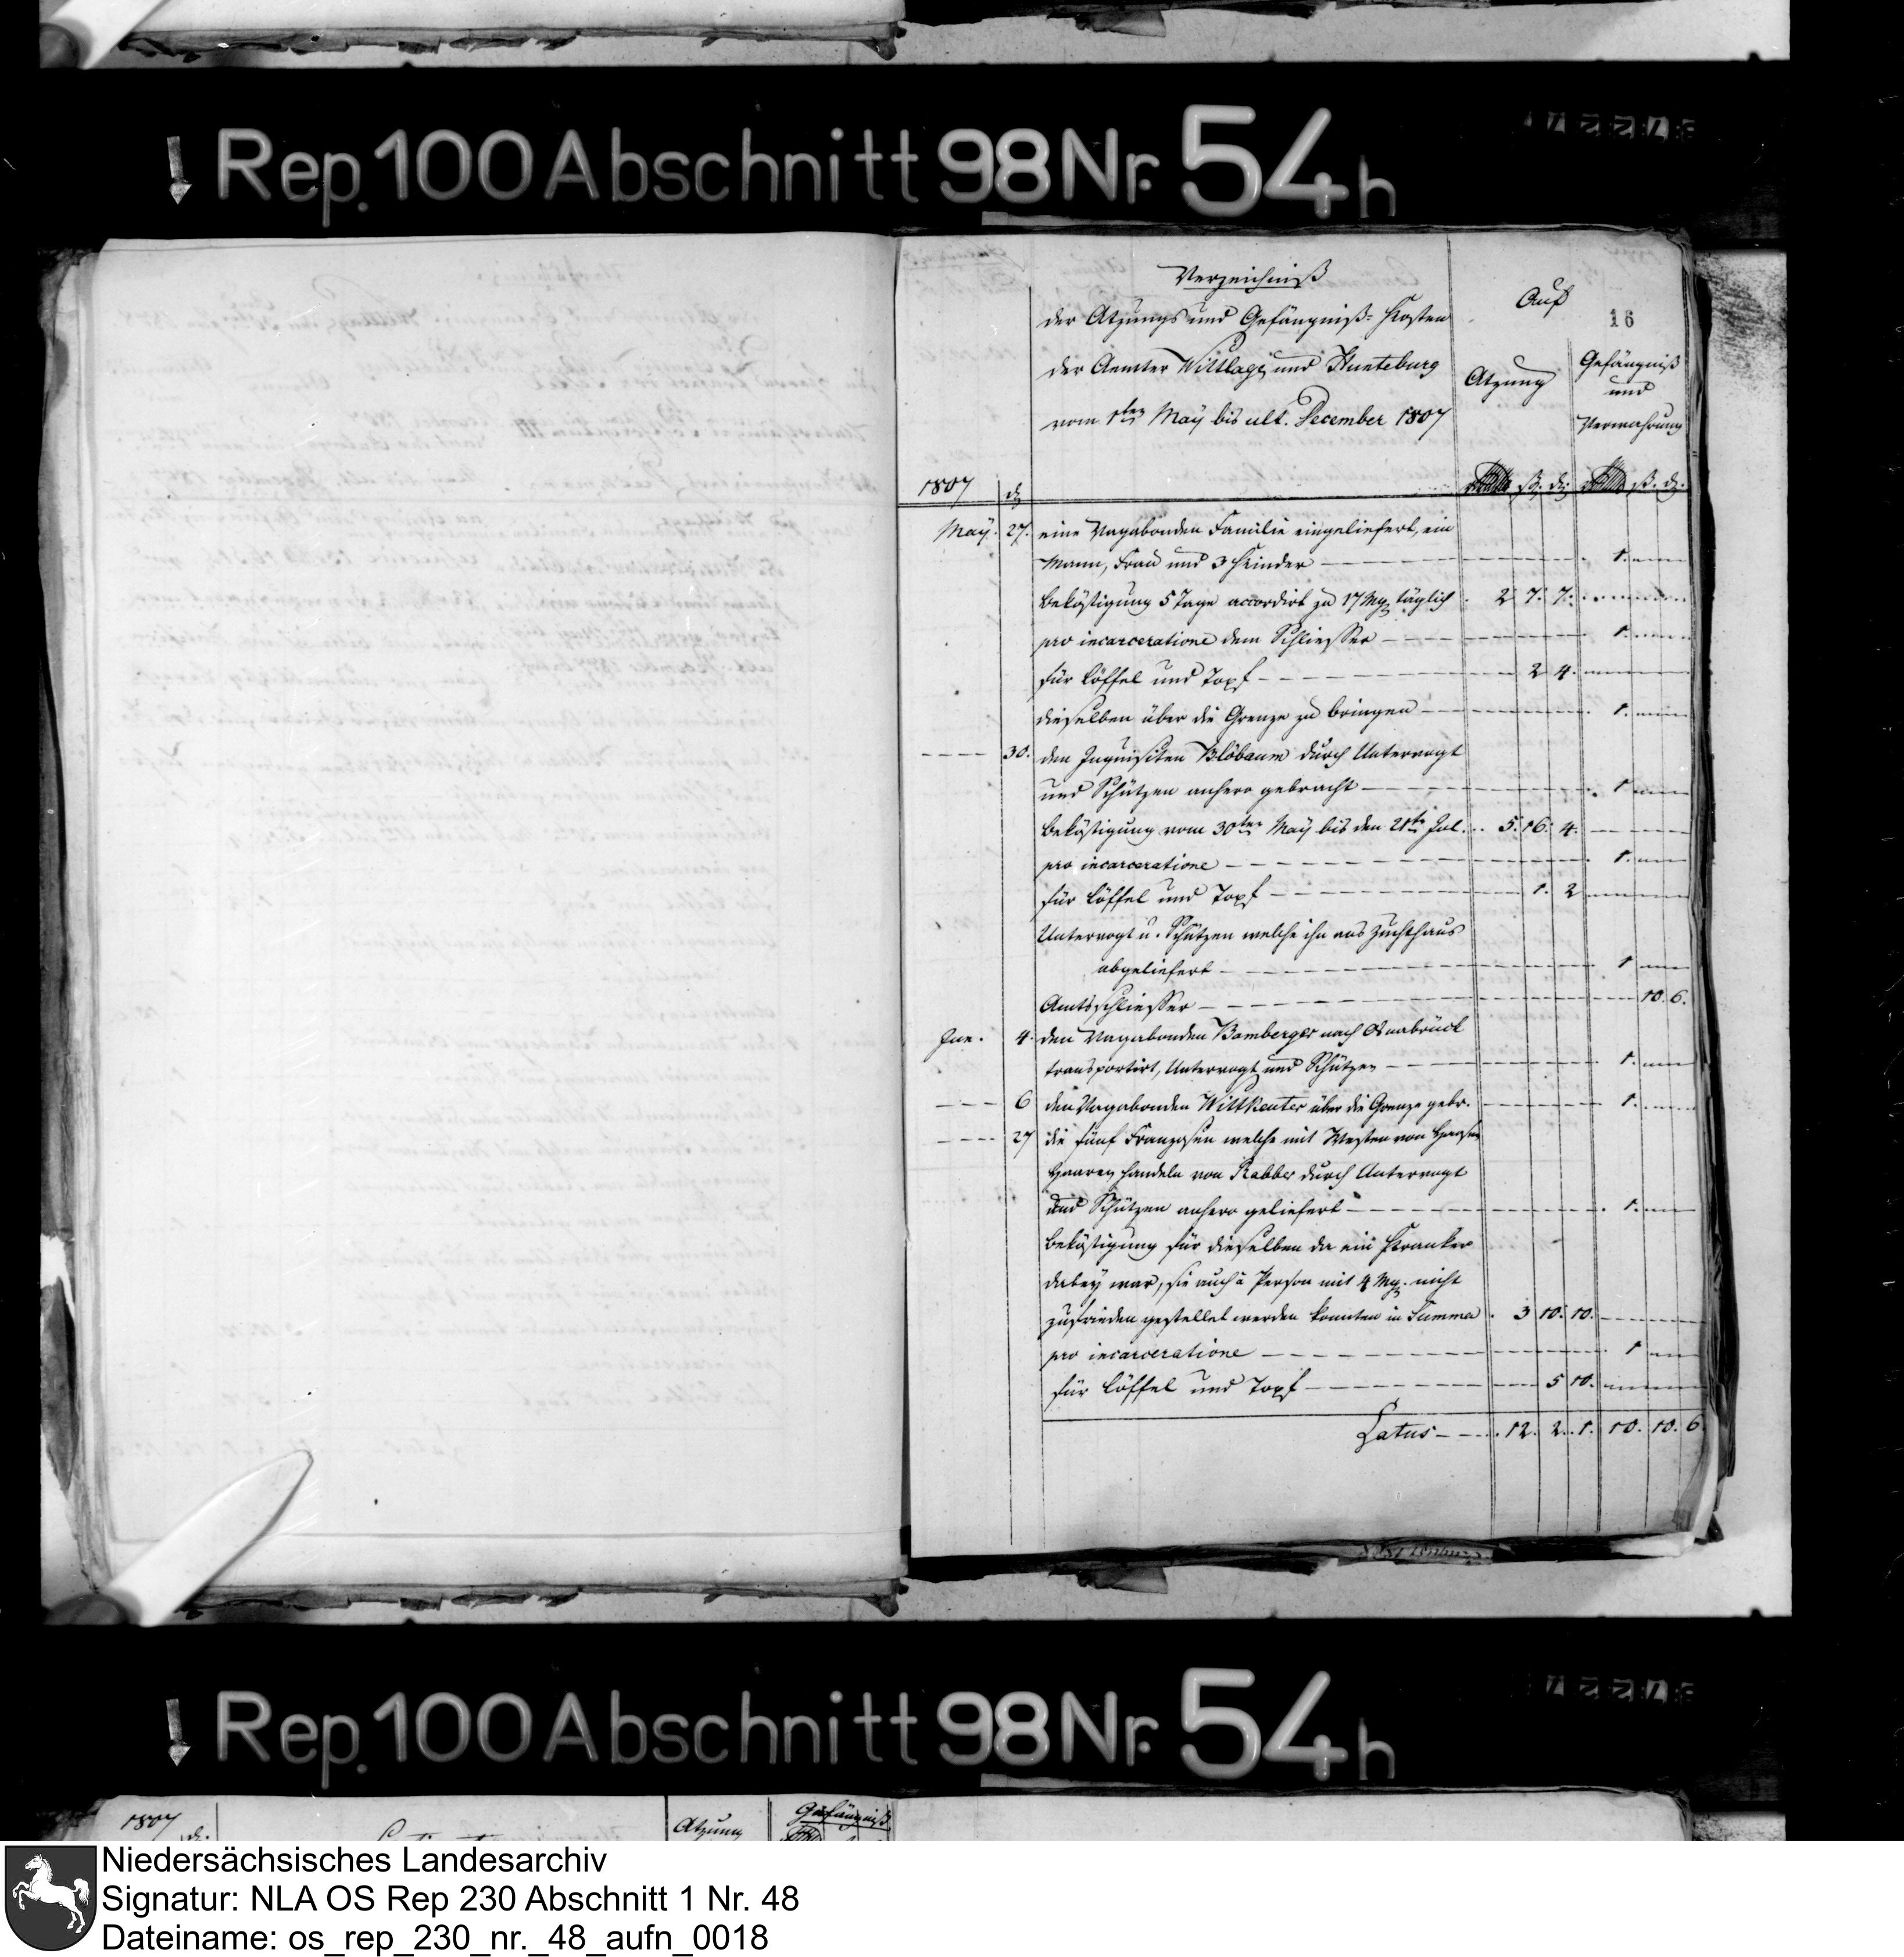 Rep. 100 Abschnitt 98 Nr. 54 h
Verzeichniß
der Atzungs und Gefängniß-Kosten
der Aemter Wittlage und Hunteburg
vom 1ten May bis ult. December 1807
Auf
16
Atzung
Gefängniß
und
Verwahrung
1807 d. ß. d. ß. d.
May. 27. eine Vagabonden Familie eingeliefert, ein
Mann, Frau und 3 Kinder 1.
Beköstigung 5 Tage accordirt zu 17 Mg täglich 2 7. 7.
pro incarceratione dem Schliesser 1.
für Löffel und Topf 2 4.
dieselben über die Grenze zu bringen 1.
30. den Inquisiten Blöbaum durch Untervogt
und Schützen anhero gebracht 1
Beköstigung vom 30ten May bis den 21te Jul. 5. 16. 4.
pro incarceratione 1.
für Löffel und Topf 1. 2
Untervogt u. Schützen welche ihn ans Zuchthaus
abgeliefert 1
Amtsschliesser 10. 6.
Jun. 4. den Vagabonden Bamberger nach Osnabrück
transportirt, Untervogt und Schützen 1.
6 den Vagabonden Wittkenter über die Grenze gebr. 1.
27 die fünf Franzosen welche mit Westen von
Haaren handeln von Rabber durch Untervogt
und Schützen anhero geliefert 1.
Beköstigung für dieselben da ein Kranker
dabey war, sie auch à Person mit 4 Mg. nicht
zufrieden gestellet werden konnten in Summa 3 10. 10.
pro incarceratione 1
für Löffel und Topf 5 10.
Latus 12. 2. 1. 10. 10. 6
Rep. 100 Abschnitt 98 Nr. 54 h
1807 d. Atzung Gefängniß
Niedersächsisches Landesarchiv
Signatur: NLA OS Rep 230 Abschnitt 1 Nr. 48
Dateiname: os_rep_230_nr._48_aufn_0018